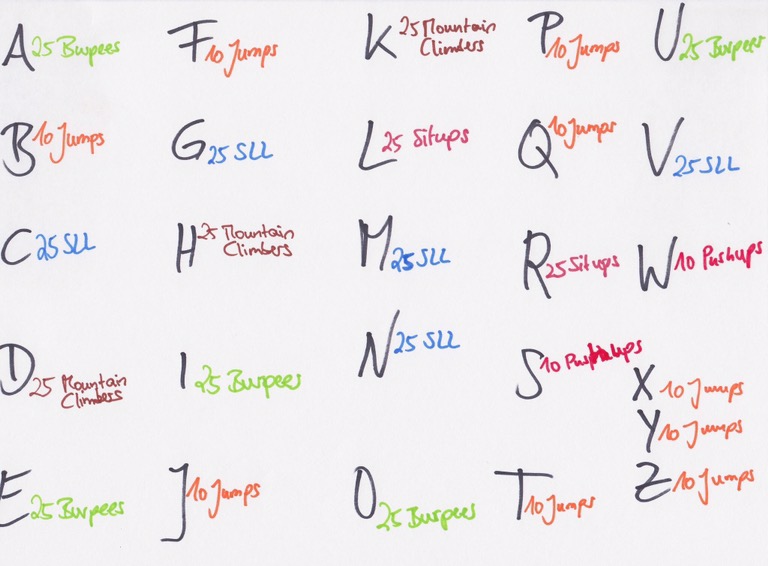 A 25 Burpees
B 10 Jumps
C 25 SLL
D 25 Mountain
Climbers
E 25 Burpees
F 10 Jumps
G 25 SLL
H 25 Mountain
Climbers
I 25 Burpees
J 10 Jumps
K 25 Mountain
Climbers
L 25 Situps
M 25 SLL
N 25 SLL
O 25 Burpees
P 10 Jumps
Q 10 Jumps
R 25 Situps
S 10 Pushups
T 10 Jumps
U 25 Burpees
V 25 SLL
W 10 Pushups
X 10 Jumps
Y 10 Jumps
Z 10 Jumps